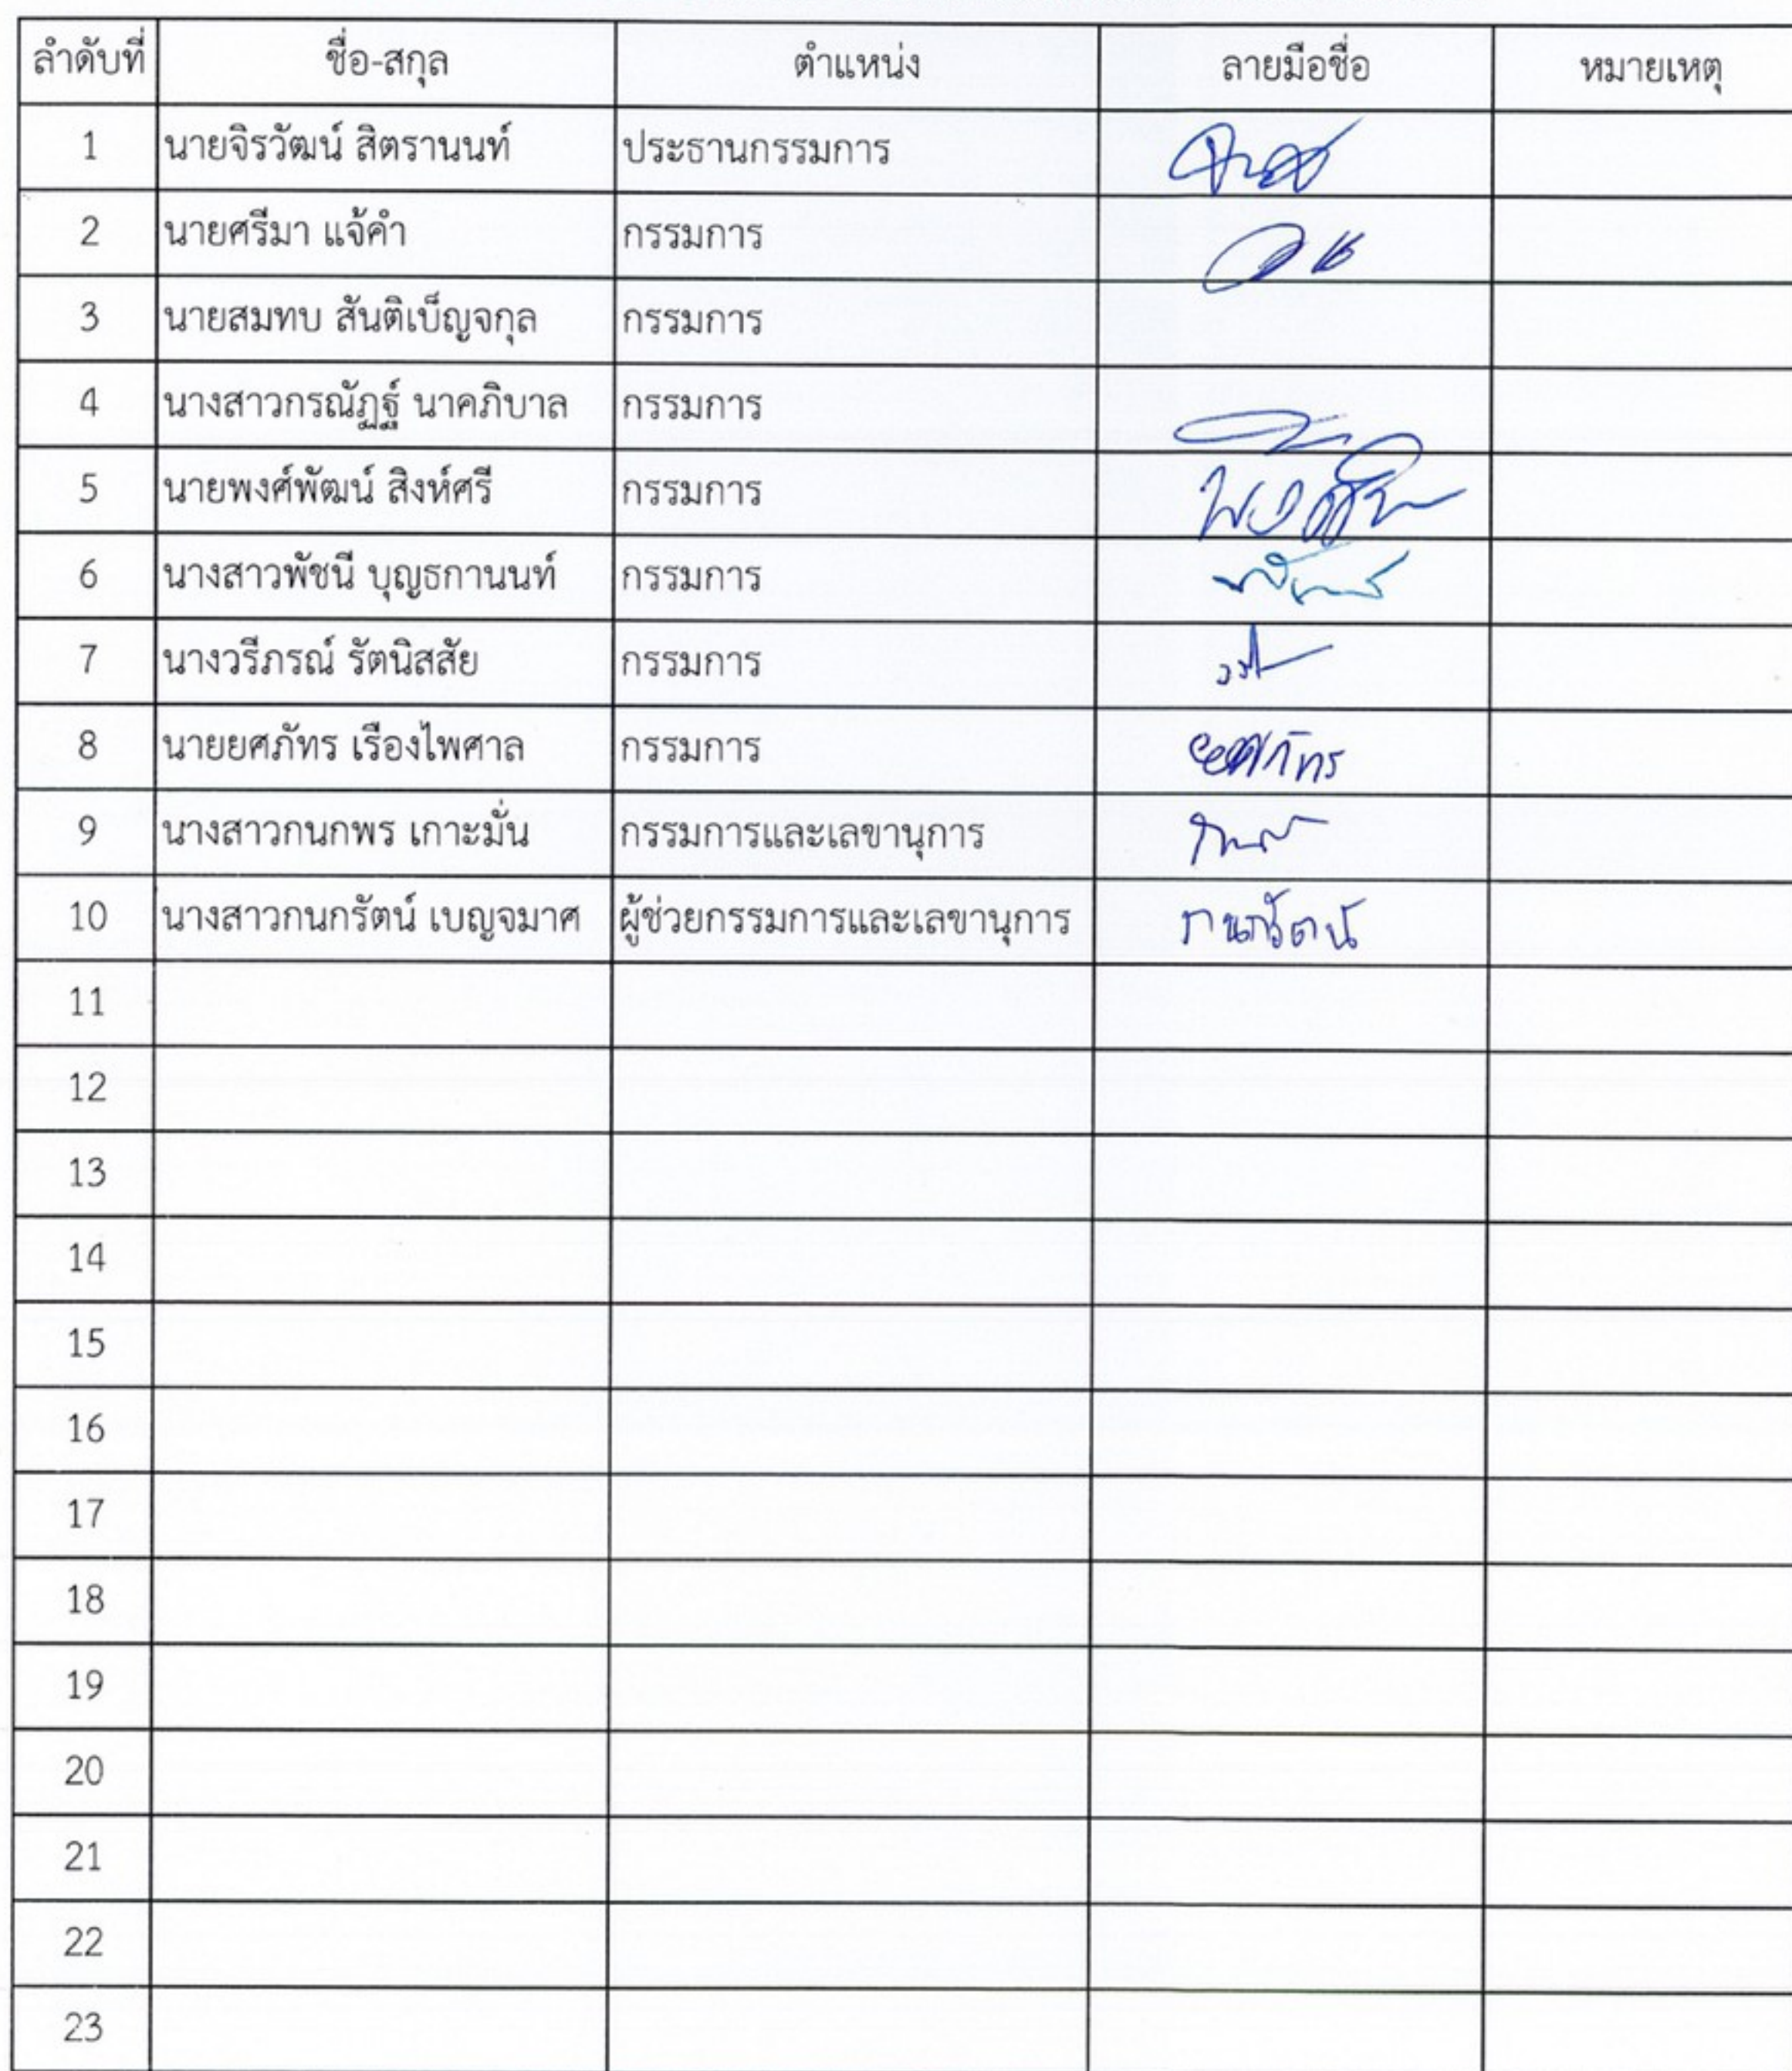 ลำดับที่ ชื่อ-สกุล ตำแหน่ง ลายมือชื่อ หมายเหตุ
1 นายจิรวัฒน์ สิตรานนท์ ประธานกรรมการ
2 นายศรีมา แจ้คำ กรรมการ
3 นายสมทบ สันติเบ็ญจกุล กรรมการ
4 นางสาวกรณัฏฐ์ นาคภิบาล กรรมการ
5 นายพงศ์พัฒน์ สิงห์ศรี กรรมการ
6 นางสาวพัชนี บุญธกานนท์ กรรมการ
7 นางวรีภรณ์ รัตนิสสัย กรรมการ
8 นายยศภัทร เรืองไพศาล กรรมการ ยศภัทร
9 นางสาวกนกพร เกาะมั่น กรรมการและเลขานุการ
10 นางสาวกนกรัตน์ เบญจมาศ ผู้ช่วยกรรมการและเลขานุการ กนกรัตน์
11
12
13
14
15
16
17
18
19
20
21
22
23